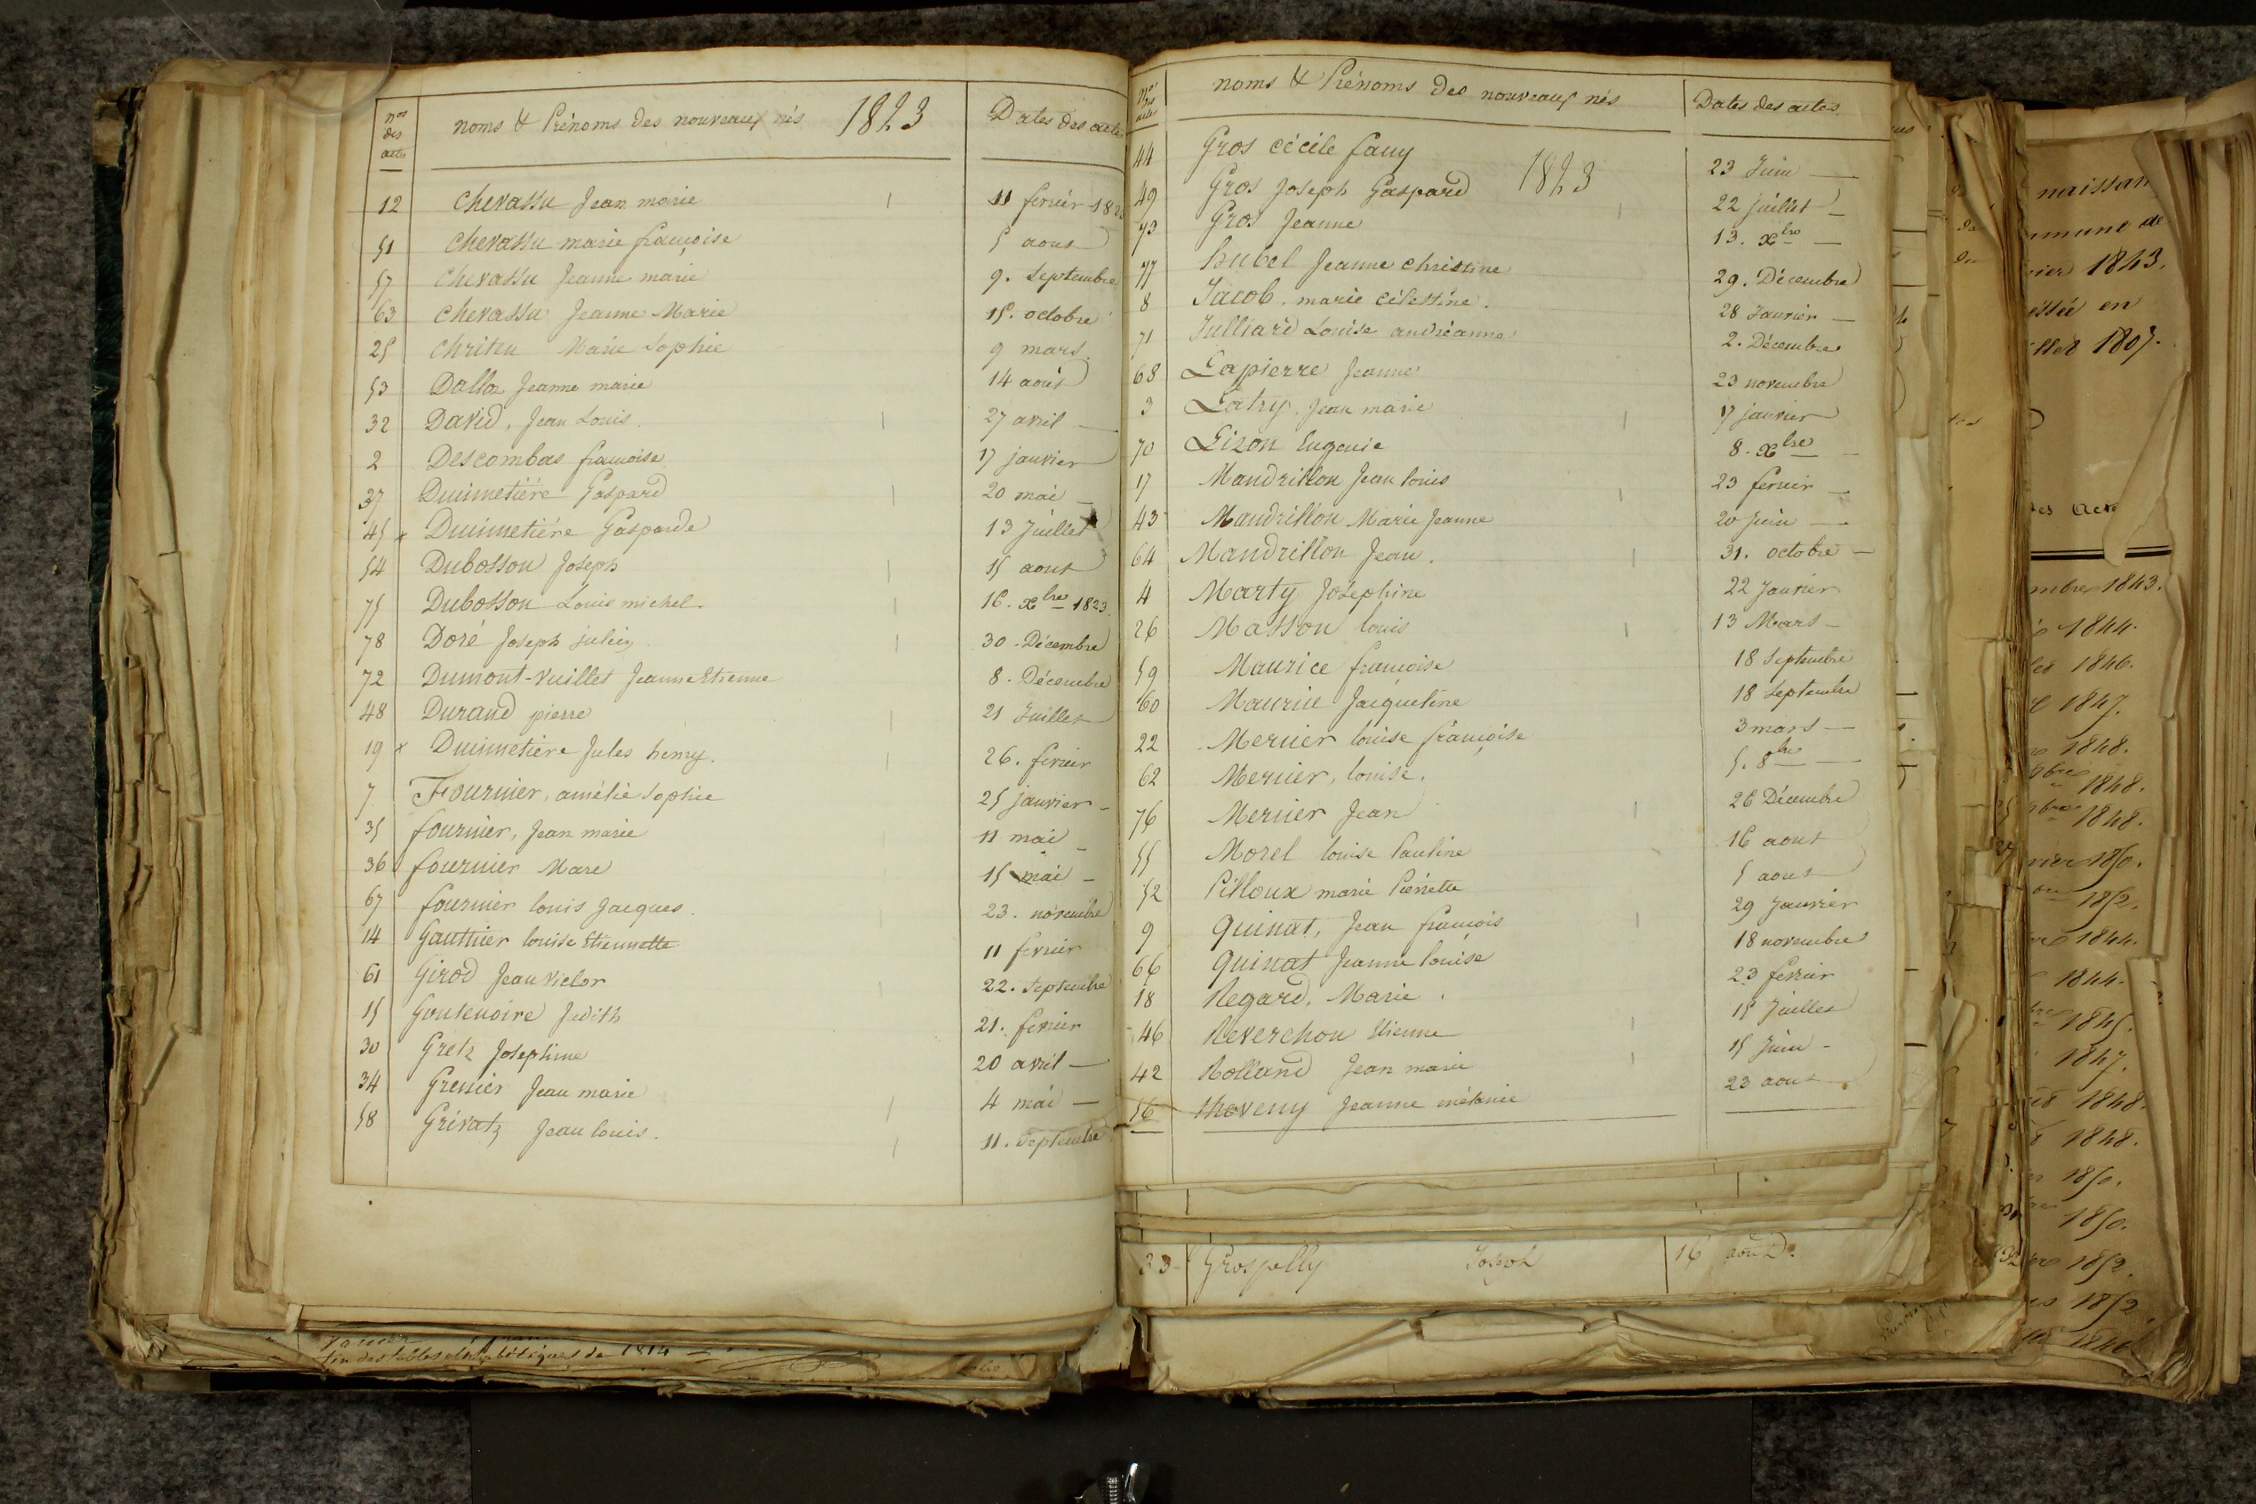 nos des actes
noms & Prénoms des nouveaux nés 1823
Dates des actes
12 Chevassu Jean marie 11 fevrier 1823
51 Chevassu marie françoise 5 aout
57 Chevassu Jeanne marie 9. Septembre
63 Chevassu Jeanne Marie 15. octobre
25 Marie Sophie 9 mars.
53 Dalloz Jeanne marie 14 août
32 David, Jean Louis. 27 avril —
2 Descombas françoise 17 janvier
37 Duimetière Gaspard 20 mai —
45 x Duimetière Gasparde 13 Juillet
54 Dubosson Joseph 15 aout
75 Dubosson Louis michel. 16. xbre 1823.
78 Doré Joseph julien 30. Décembre
72 Dumont-Vuillet Jeanne Etienne 8. Décembre
48 Durand pierre 21 Juillet
19 x Duimetière Jules henry. 26. fevrier
7 Fournier, amélie Sophie 25 janvier —
35 fournier, Jean marie 11 mai —
36 fournier Marc 15 mai —
67 fournier louis Jacques. 23. novembre
14 Gauthier louise Etiennette 11 fevrier
61 Girod Jean Victor 22. Septembre
15 Goutenoire Judith 21. fevrier
30 Gretz Josephine 20 avril —
34 Grenier Jean marie 4 mai —
58 Grivatz Jean louis. 11. Septembre
nos des actes
noms & Prénoms des nouveaux nés
Dates des actes.
1823
44 Gros cécile fany 23 Juin —
49 Gros Joseph Gaspard 22 juillet —
73 Gros Jeanne 13. xbre —
77 Hubel Jeanne christine 29. Décembre
8 Jacob. marie célestine. 28 Janvier —
71 Julliard Louise andréanne 2. Décembre
68 Lapierre Jeanne 23 novembre
3 Latry. Jean marie 17 janvier
70 Lizon Eugenie 8. xbre —
17 Mandrillon Jean louis 23 fevrier —
43 Mandrillon Marie Jeanne 20 Juin —
64 Mandrillon Jean. 31. octobre —
4 Marty Joséphine 22 Janvier
26 Masson louis 13 Mars —
59 Maurice françoise 18 Septembre
60 Maurice Jacqueline 18 Septembre
22 Mernier louise françoise 3 mars —
62 Mernier, louise. 5. 8bre —
76 Mernier Jean 26 Décembre
55 Morel louise Pauline 16 aout
52 Pilloux marie Pierrette 5 aout
9 Quinat, Jean françois 29 Janvier
66 Quinat Jeanne louise 18 novembre
18 Regard, Marie. 23 fevrier
46 Reverchon Etienne 15 Juillet
42 Rolland Jean marie 15 Juin —
56 thoveny Jeanne mélanie 23 aout
33 Grospelly Joseph 16 aout
fin des tables alphabétiques de 1814
1843.
en
1807.
1843.
1844.
1846.
1847.
1848.
1848.
1848.
1850.
1852.
1844.
1844.
1845.
1847.
1848.
1848.
1850.
1850.
1852.
1852.
1846